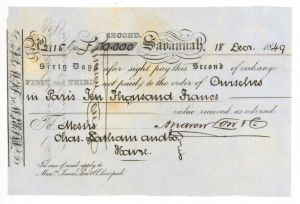 SECOND.
No 2115 for F 10,000 Savannah, 18 Decr. 1849
Sixty Days after sight pay this Second of exchange
FIRST and THIRD not paid, to the order of Ourselves
in Paris Ten Thousand Francs
value received as advised.
To Messrs Andrew Low & Co
Chas. Latham and Co
Havre.
In case of need apply to
Messrs Isaac Low & Co Liverpool